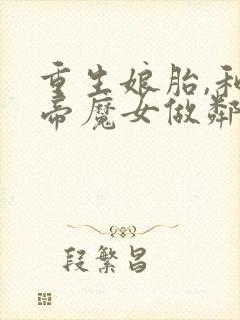 重生娘胎,和
帝魔女做鄰
段繁昌